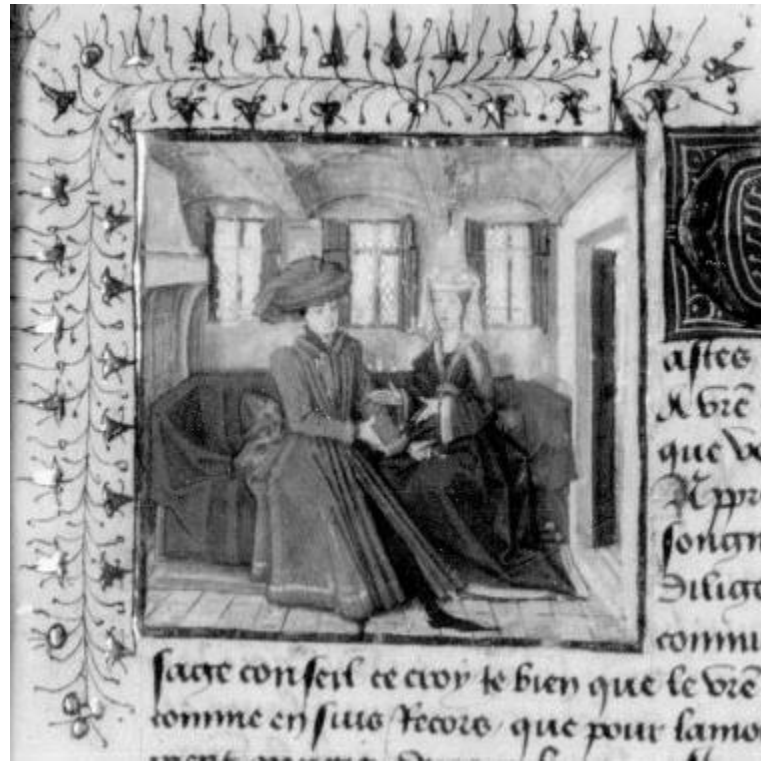 astes
A vrē
que vo
Rppr
songn
Dilige
commu
sage conseil ce croy je bien que le vrē
comme en suis Recors / que pour lamo